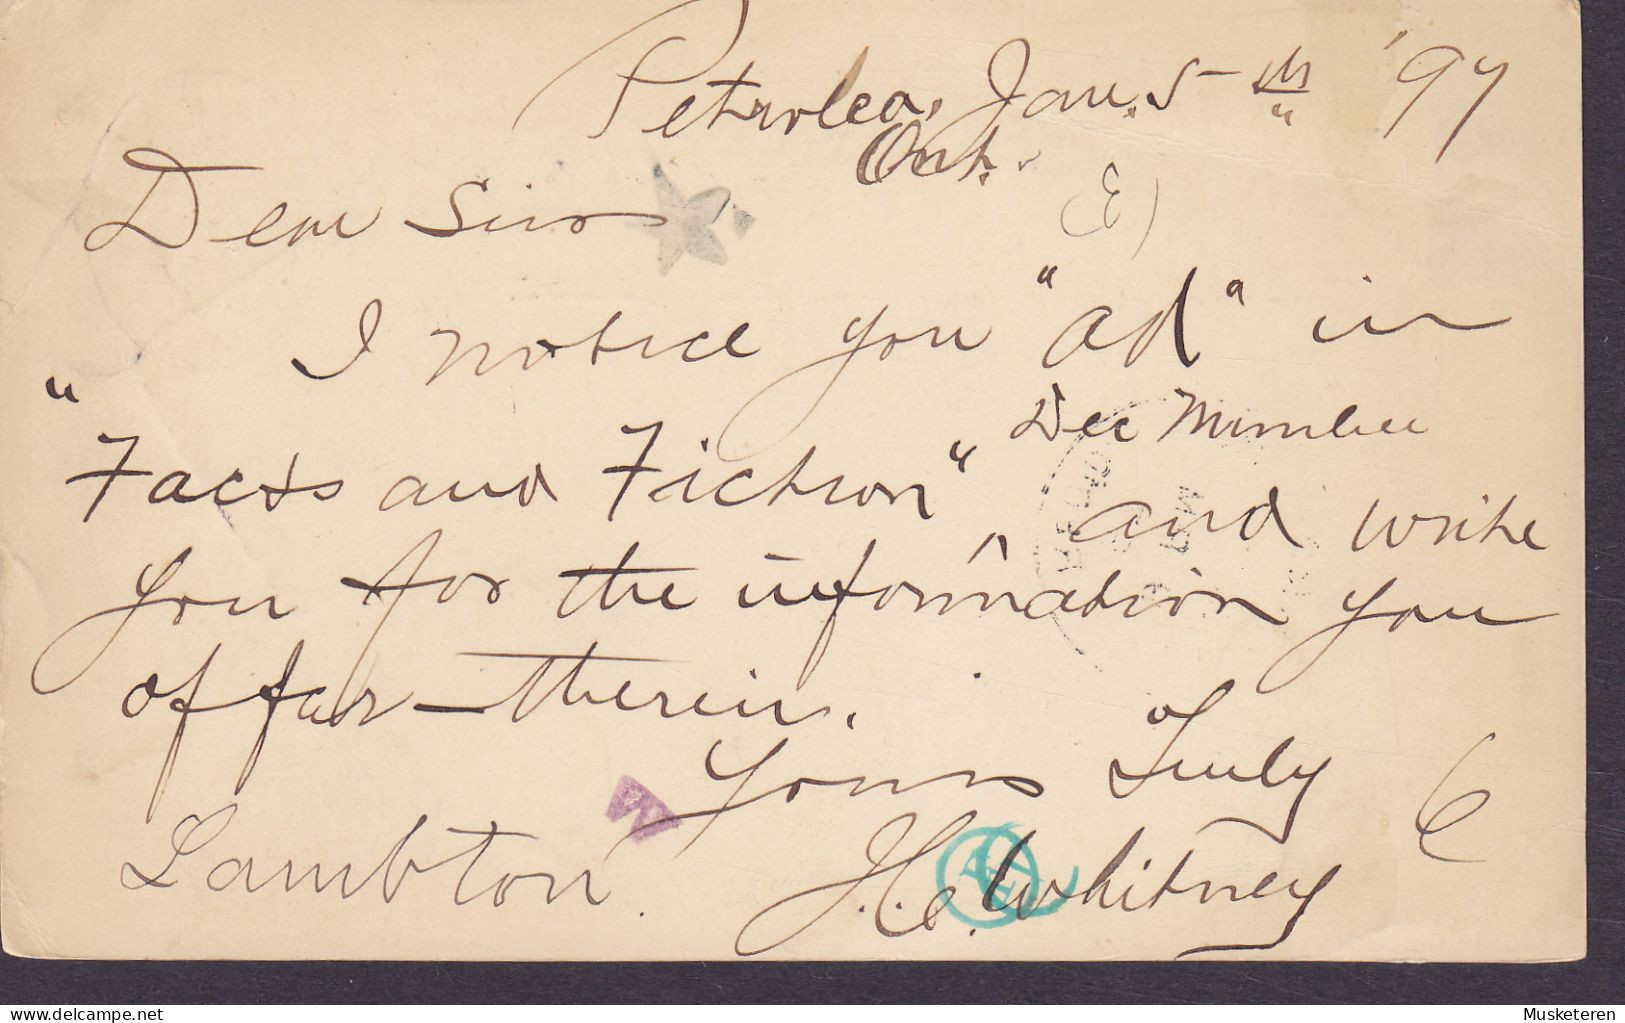 Petrolea, Jan. 5th '97
Ont.
Dear Sirs
I notice you "ad" in
"Facts and Fiction" Dec Number and write
you for the information you
offer therein.
Yours Truly
Lambton. J. C. Whitney
delcampe.net
Musketeren